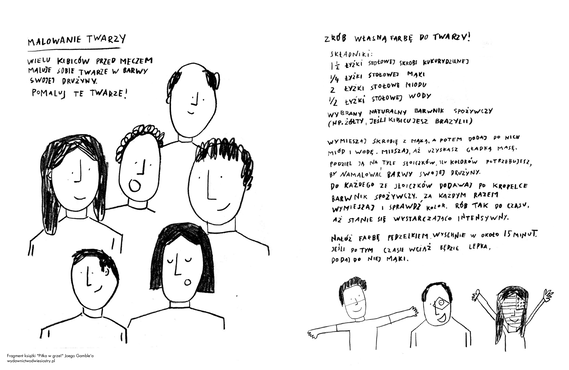 MALOWANIE TWARZY
WIELU KIBICÓW PRZED MECZEM
MALUJE SOBIE TWARZE W BARWY
SWOJEJ DRUŻYNY.
POMALUJ TE TWARZE!
ZRÓB WŁASNĄ FARBĘ DO TWARZY!
SKŁADNIKI:
1½ ŁYŻKI STOŁOWEJ SKROBI KUKURYDZIANEJ
¼ ŁYŻKI STOŁOWEJ MĄKI
2 ŁYŻKI STOŁOWE MIODU
½ ŁYŻKI STOŁOWEJ WODY
WYBRANY NATURALNY BARWNIK SPOŻYWCZY
(NP. ŻÓŁTY, JEŚLI KIBICUJESZ BRAZYLII)
WYMIESZAJ SKROBIĘ Z MĄKĄ, A POTEM DODAJ DO NICH
MIÓD I WODĘ. MIESZAJ, AŻ UZYSKASZ GŁADKĄ MASĘ.
PODZIEL JĄ NA TYLE SŁOICZKÓW, ILU KOLORÓW POTRZEBUJESZ,
BY NAMALOWAĆ BARWY SWOJEJ DRUŻYNY.
DO KAŻDEGO ZE SŁOICZKÓW DODAWAJ PO KROPELCE
BARWNIK SPOŻYWCZY, ZA KAŻDYM RAZEM
WYMIESZAJ I SPRAWDŹ KOLOR. RÓB TAK DO CZASU,
AŻ STANIE SIĘ WYSTARCZAJĄCO INTENSYWNY.
NAŁÓŻ FARBĘ PĘDZELKIEM. WYSCHNIE W OKOŁO 15 MINUT.
JEŚLI PO TYM CZASIE WCIĄŻ BĘDZIE LEPKA,
DODAJ DO NIEJ MĄKI.
Fragment książki "Piłka w grze!" Joego Gamble'a
wydawnictwodwiesiostry.pl